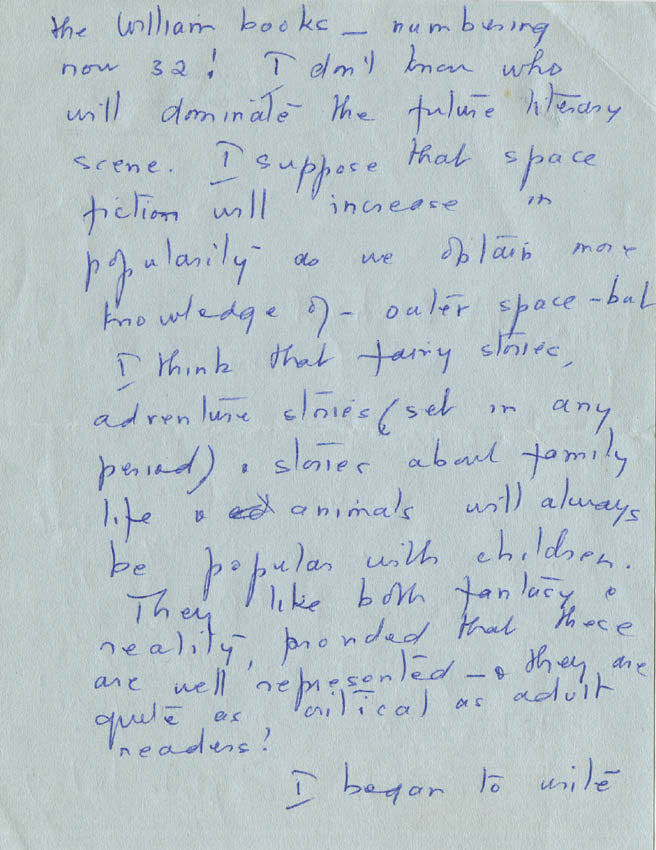 the William books – numbering
now 32! I don't know who
will dominate the future literary
scene. I suppose that space
fiction will increase in
popularity as we obtain more
knowledge of outer space – but
I think that fairy stories,
adventure stories (set in any
period) & stories about family
life & animals will always
be popular with children.
They like both fantasy &
reality, provided that these
are well represented – & they are
quite as critical as adult
readers!
I began to write